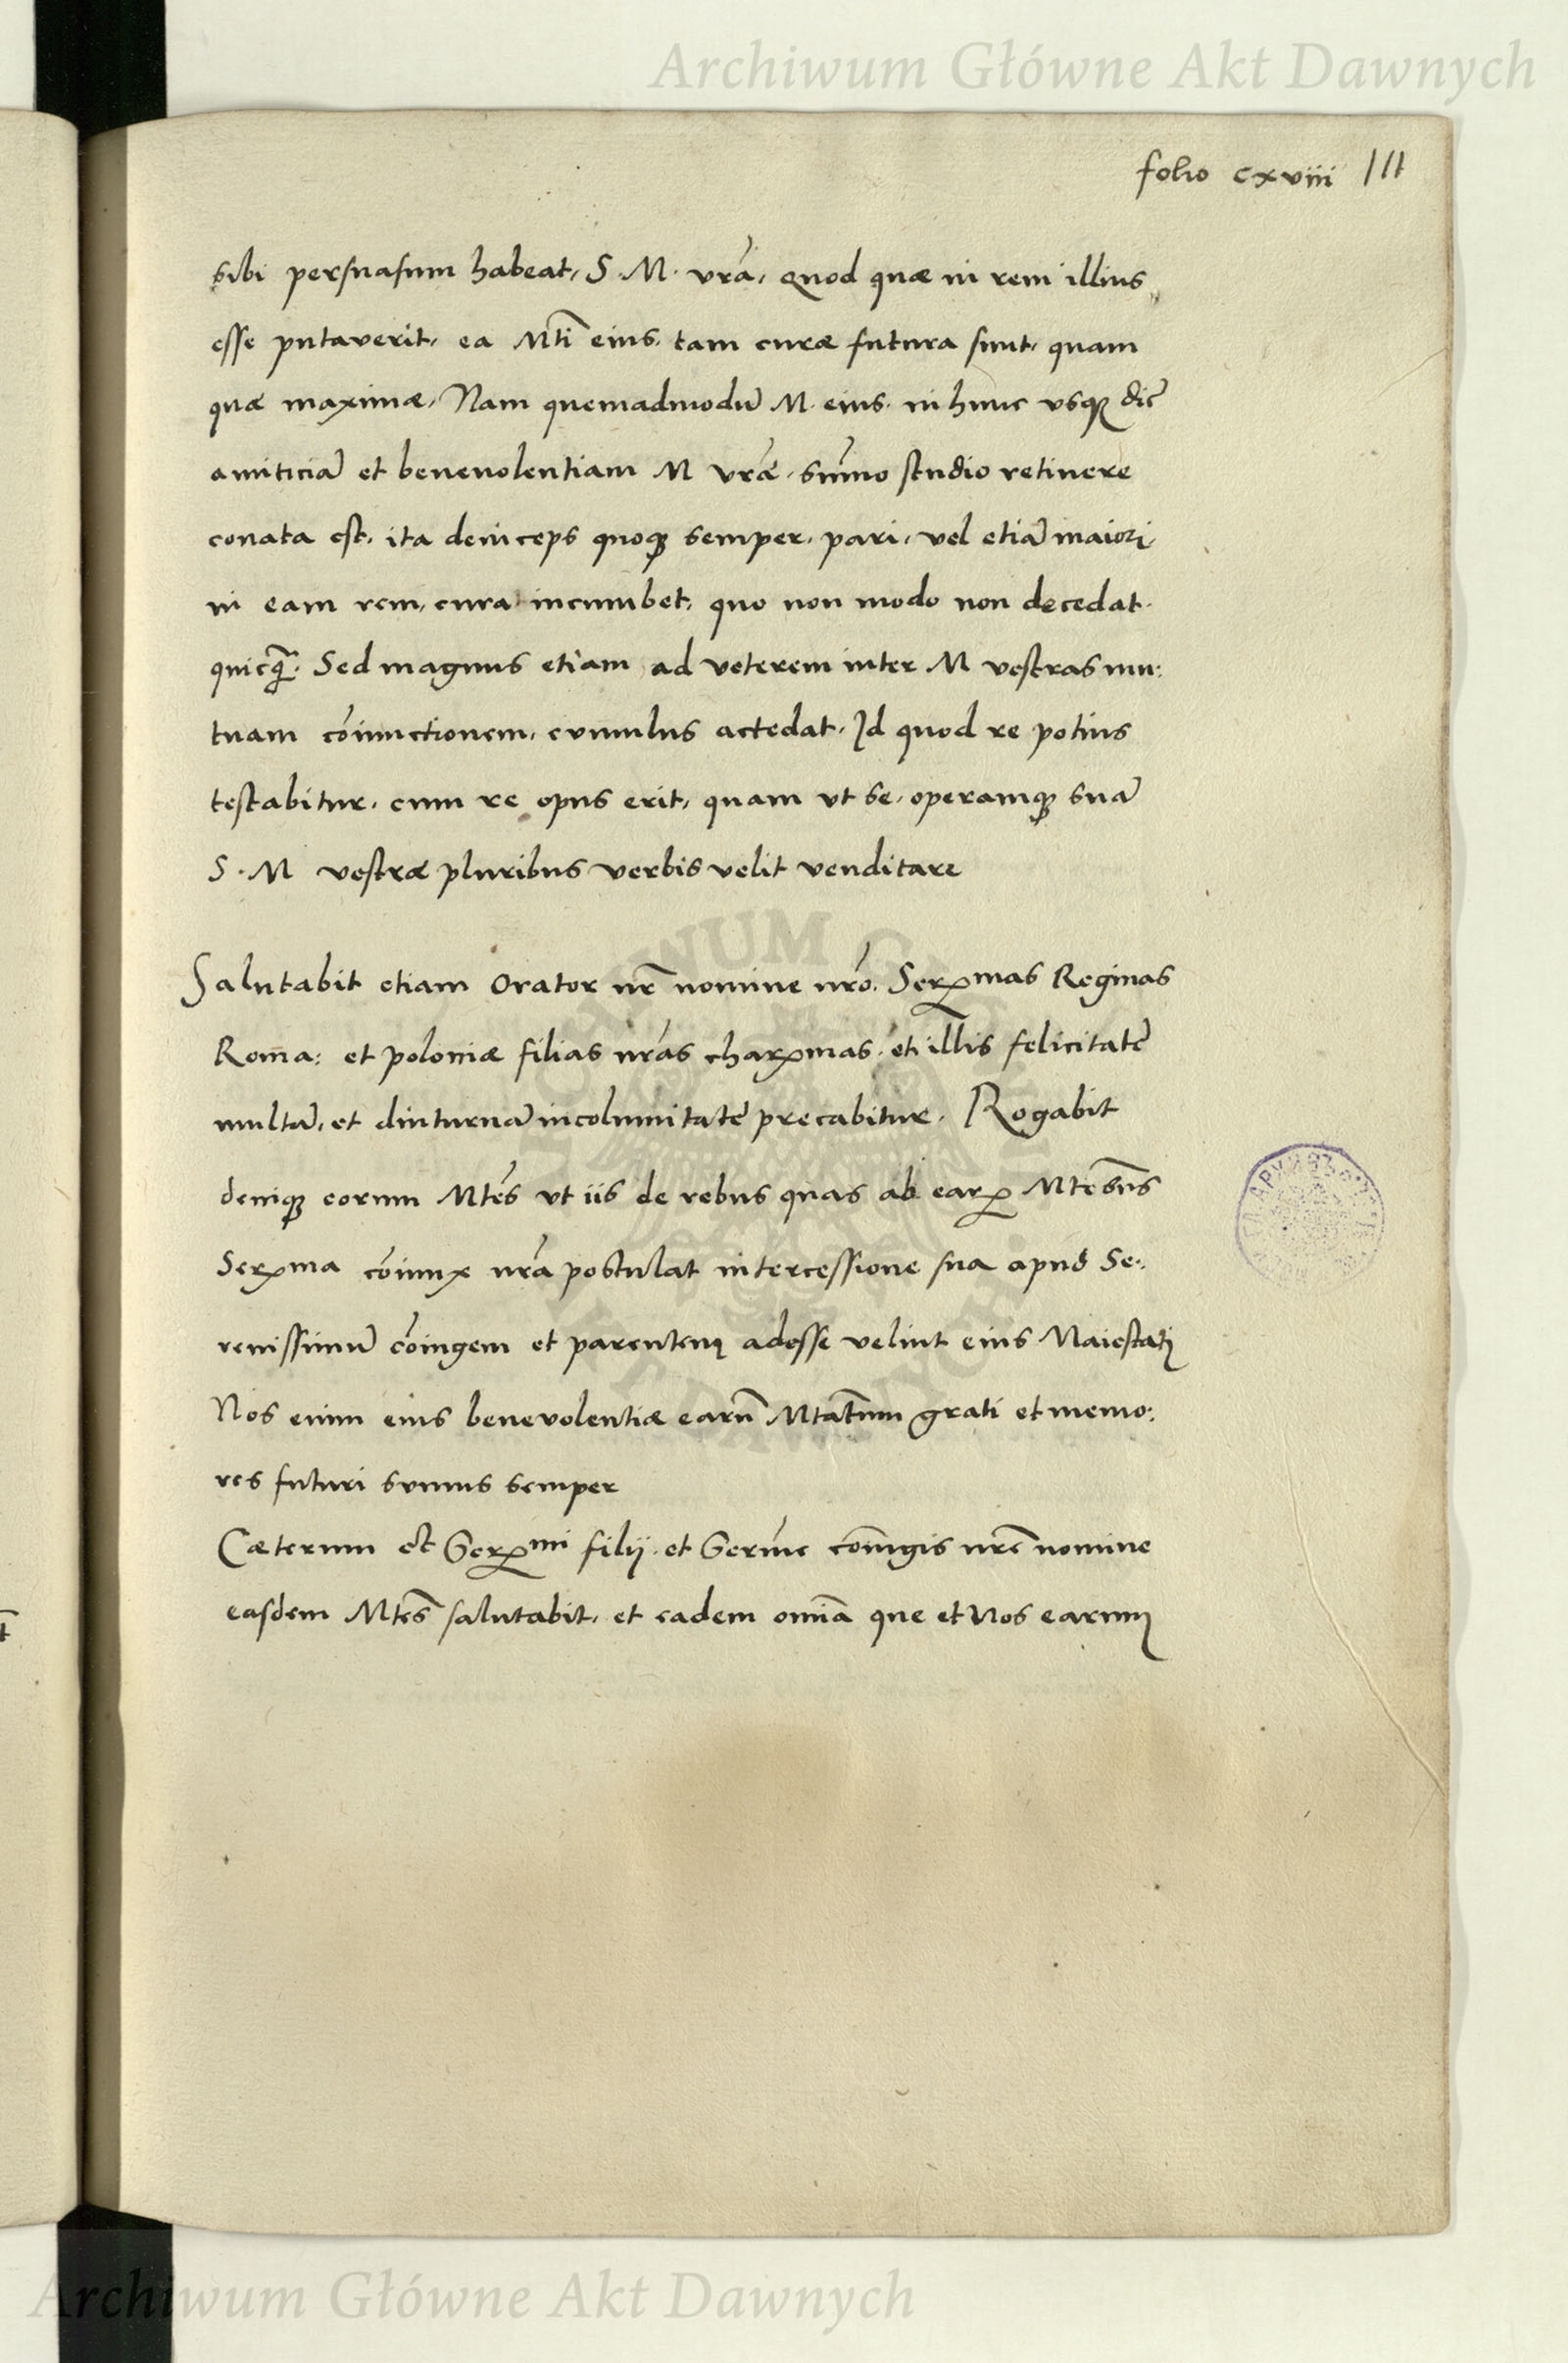 Archiwum Główne Akt Dawnych
folio cxviii 111
sibi persuasum habeat, S. M. vrã, Quod quæ in rem illius
esse putaverit, ea Mti̅ eius, tam curæ futura sunt, quam
quæ maximæ, Nam quemadmodũ M. eius. in hunc vsqꝫ diẽ
amiticiã et benevolentiam M vræ̃. sum̃o studio retinere
conata est, ita deinceps quoqꝫ semper, pari, vel etiã maiori,
in eam rem, cura incumbet, quo non modo non decedat.
quicq̃. Sed magnus etiam ad veterem inter M vestras mu:
tuam cõiunctionem, cumulus accedat. Id quod re potius
testabitur, cum re opus erit, quam vt se, operamqꝫ suã
S. M vestræ pluribus verbis velit venditare
Salutabit etiam Orator nr̃ nomine nrõ. Serꝫmas Reginas
Roma: et poloniæ filias nrãs charꝫmas. et illis felicitatẽ
multã, et diuturnã incolumitatẽ precabitur. Rogabit
deniqꝫ eorum Mtẽs vt iis de rebus quas ab earꝫ Mtẽ suĩs
Serꝫma cõiunx nrã postulat intercessione sua apud Se:
renissimũ cõiugem et parentem adesse velint eius Maiestati
Nos enim eius benevolentiæ earũ Mtatum̃ grati et memo:
res futuri sumus semper
Cæterum et Serꝫmi filij. et Serm̃e coñiugis nrẽ nomine
easdem Mtẽs salutabit, et eadem omĩa que et Nos earum
Archiwum Główne Akt Dawnych